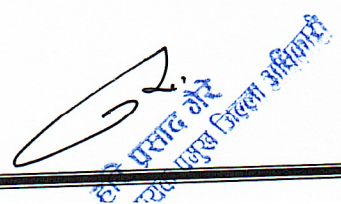 हरि प्रसाद गैरे
प्रमुख जिल्ला अधिकारी